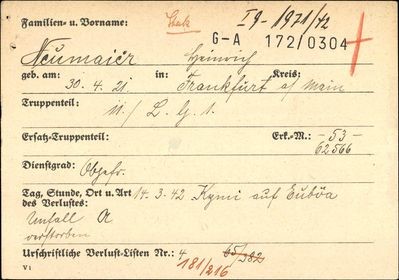 Familien- u. Vorname: Stek I9-1971/72
G-A 172/0304
Neumaier Heinrich
geb. am: 30. 4. 21. in: Frankfurt a/ Main Kreis:
Truppenteil: 11./ L. g. 1.
Ersatz-Truppenteil: Erk.-M.: -53-
62566
Dienstgrad: Obgefr.
Tag, Stunde, Ort u. Art des Verlustes: 14. 3. 42 Kymi auf Euböa
Unfall A
verstorben
Urschriftliche Verlust-Listen Nr.: 4 65/382
181/216
V1